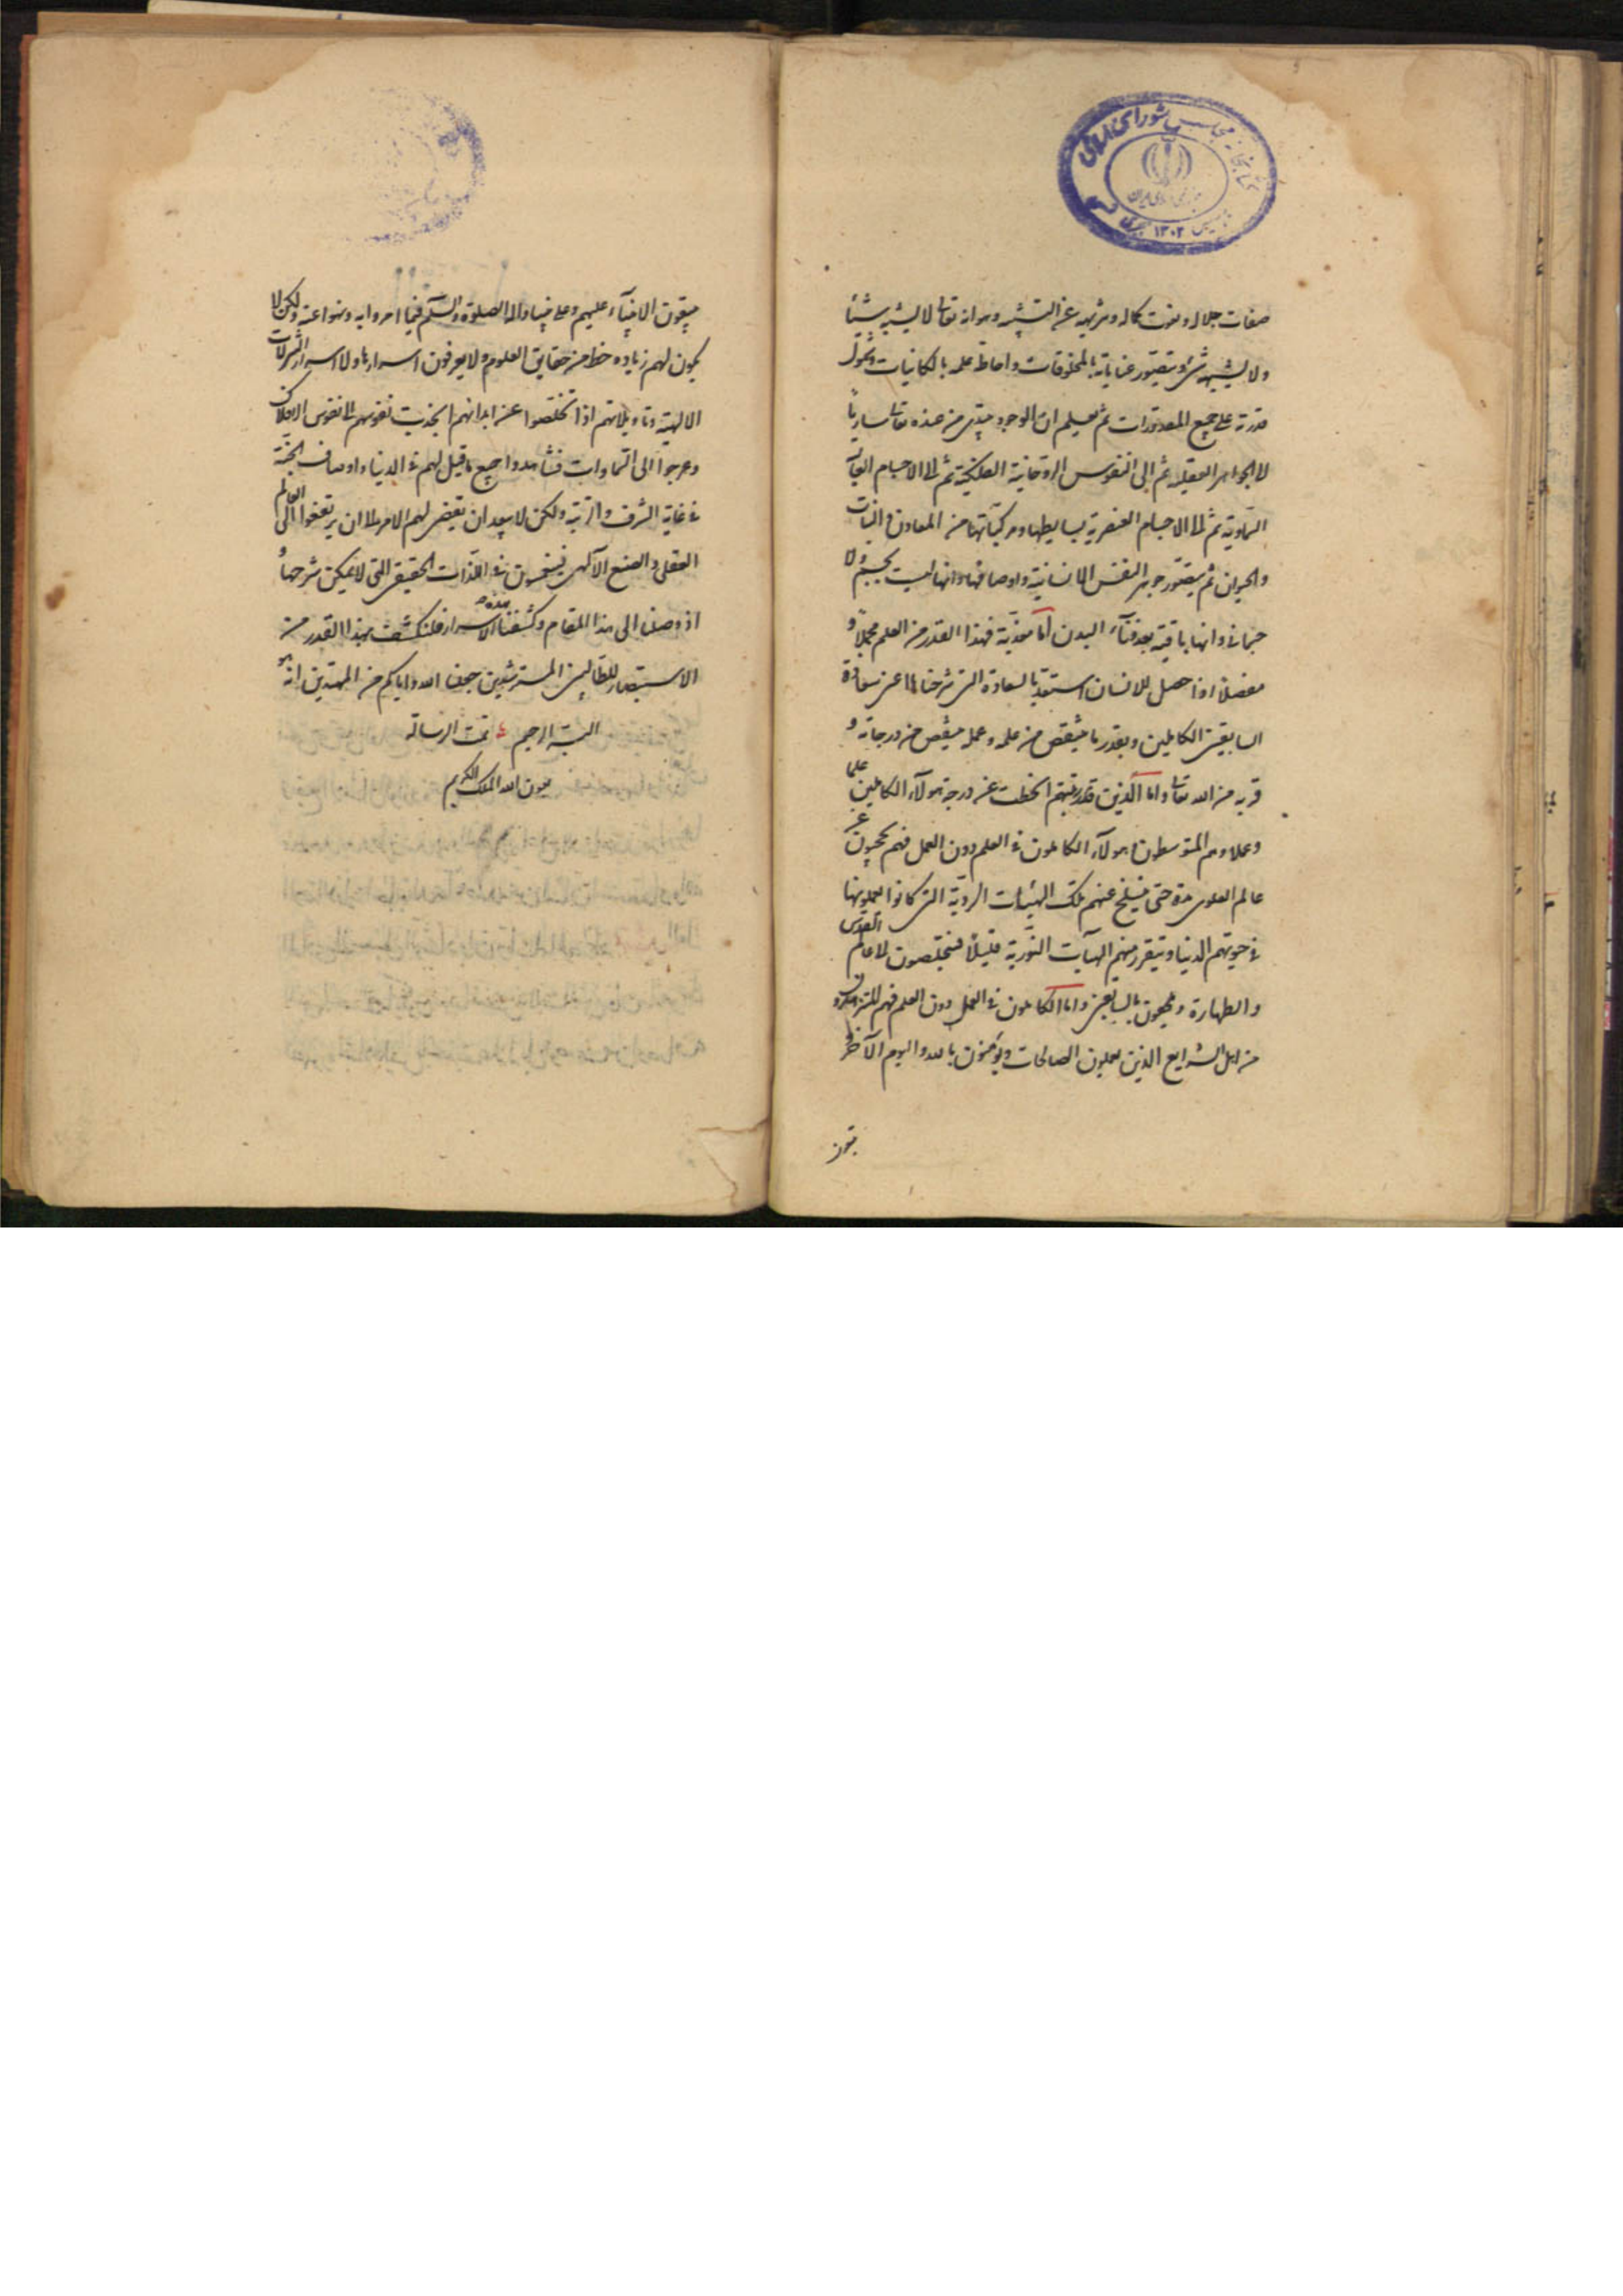 صفات جلاله ونعوت كماله وتنزيهه عن التشبيه وهو انه تعالى لا يشبه شيئاً
ولا يشبهه شئ ويتصور عناياته بالمخلوقات واحاطة علمه بالكاينات وشمول
قدرته على جميع المقدورات ثم يعلم ان الوجود يبتدى من عنده تعالى ساريا
الى الجواهر العقلية ثم الى النفوس الروحانية الفلكية ثم الى الاجسام
السماوية ثم الى الاجسام العنصرية بسايطها ومركباتها من المعادن والنبات
والحيوان ثم يتصور جوهر النفس الانسانية واوصافها وانها ليست بجسم ولا
جسمانى وانها باقية بعد فناء البدن اما معذبة فهذا القدر من العلم مجملا و
مفصلا اذا حصل للانسان استعد بالسعادة التى شرحناها اعنى سعادة
السابقين الكاملين وبقدر ما ينتقص من علمه وعمله ينتقص من درجاته و
قربه من الله تعالى واما الذين قدر رتبتهم انحطت عن درجة هولاء الكاملين علما
وعملا وهم المتوسطون هولاء الكاملون فى العلم دون العمل فهم يحجبون عن
عالم العلوى مدة حتى ينسلخ عنهم تلك الهيئات الردية التى كانوا يعملونها
فى حيوتهم الدنيا ويتقرر منهم الهيآت النورية قليلاً فيتخلصون الى عالم القدس
والطهارة ويلحقون بالسابقين واما الكاملون فى العمل دون العلم فهم المتنزهون
من اهل الشرايع الذين يعملون الصالحات ويؤمنون بالله واليوم الآخر و
يتبعون الانبيآء عليهم وعلى نبينا واله الصلوة والسلم فيما امروا به ونهوا عنه ولكن لا
يكون لهم زيادة حظ من حقايق العلوم ولا يعرفون اسرارها ولا اسرار التنزيلات
الالهية وتاويلاتهم اذا تخلصوا عن ابدانهم انجذبت نفوسهم الى نفوس الافلاك
وعرجوا الى السماوات فشاهدوا جميع ما قيل لهم فى الدنيا واوصاف الجنة
فى غاية الشرف والرتبة ولكن لا يبعد ان يفضى لهم الامر الى ان يرتقوا الى العالم
العقلى والصنع الآلهى فينغمسون فى اللذات الحقيقى التى لا يمكن شرحها و
اذ وصلنا الى هذا المقام وكشفنا هذه الاسرار فلنكتف بهذا القدر من
الاستبصار للطالبين المسترشدين جعلنا الله واياكم من المهتدين انه هو
البر الرحيم تمت الرسالة
بعون الله الملك الكريم
كتابخانه مجلس شوراى اسلامى
جمهورى اسلامى ايران
تاسيس ۱۳۰۲ هجرى شمسى